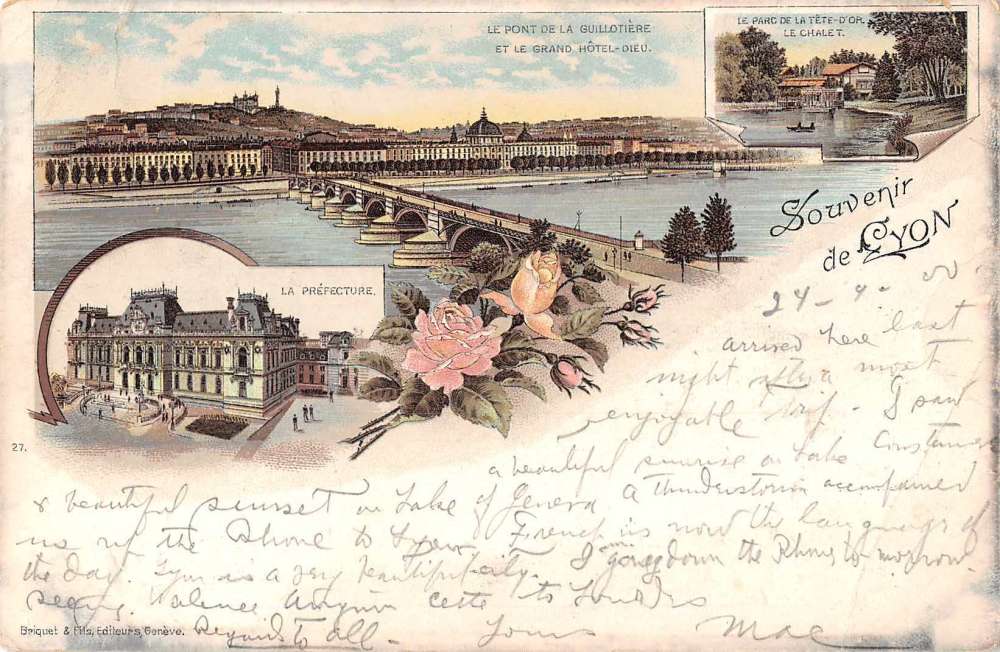 LE PONT DE LA GUILLOTIÈRE
ET LE GRAND HÔTEL-DIEU.
LE PARC DE LA TÊTE-D'OR.
LE CHALET.
Souvenir
de LYON
LA PRÉFECTURE.
27.
arrived here last
night after a most
enjoyable trip - I saw
a beautiful sunrise on Lake Constance
& beautiful sunset on Lake of Geneva A Thunderstorm accompanied
us up the Rhone to Lyon French is now the language of
the day. Lyon is a very beautiful city. I am going down the Rhone to morrow
seeing Valence Avignon Cette to Lourdes
Regards to all - Yours Mac
Briquet & Fils, Editeurs, Genève.